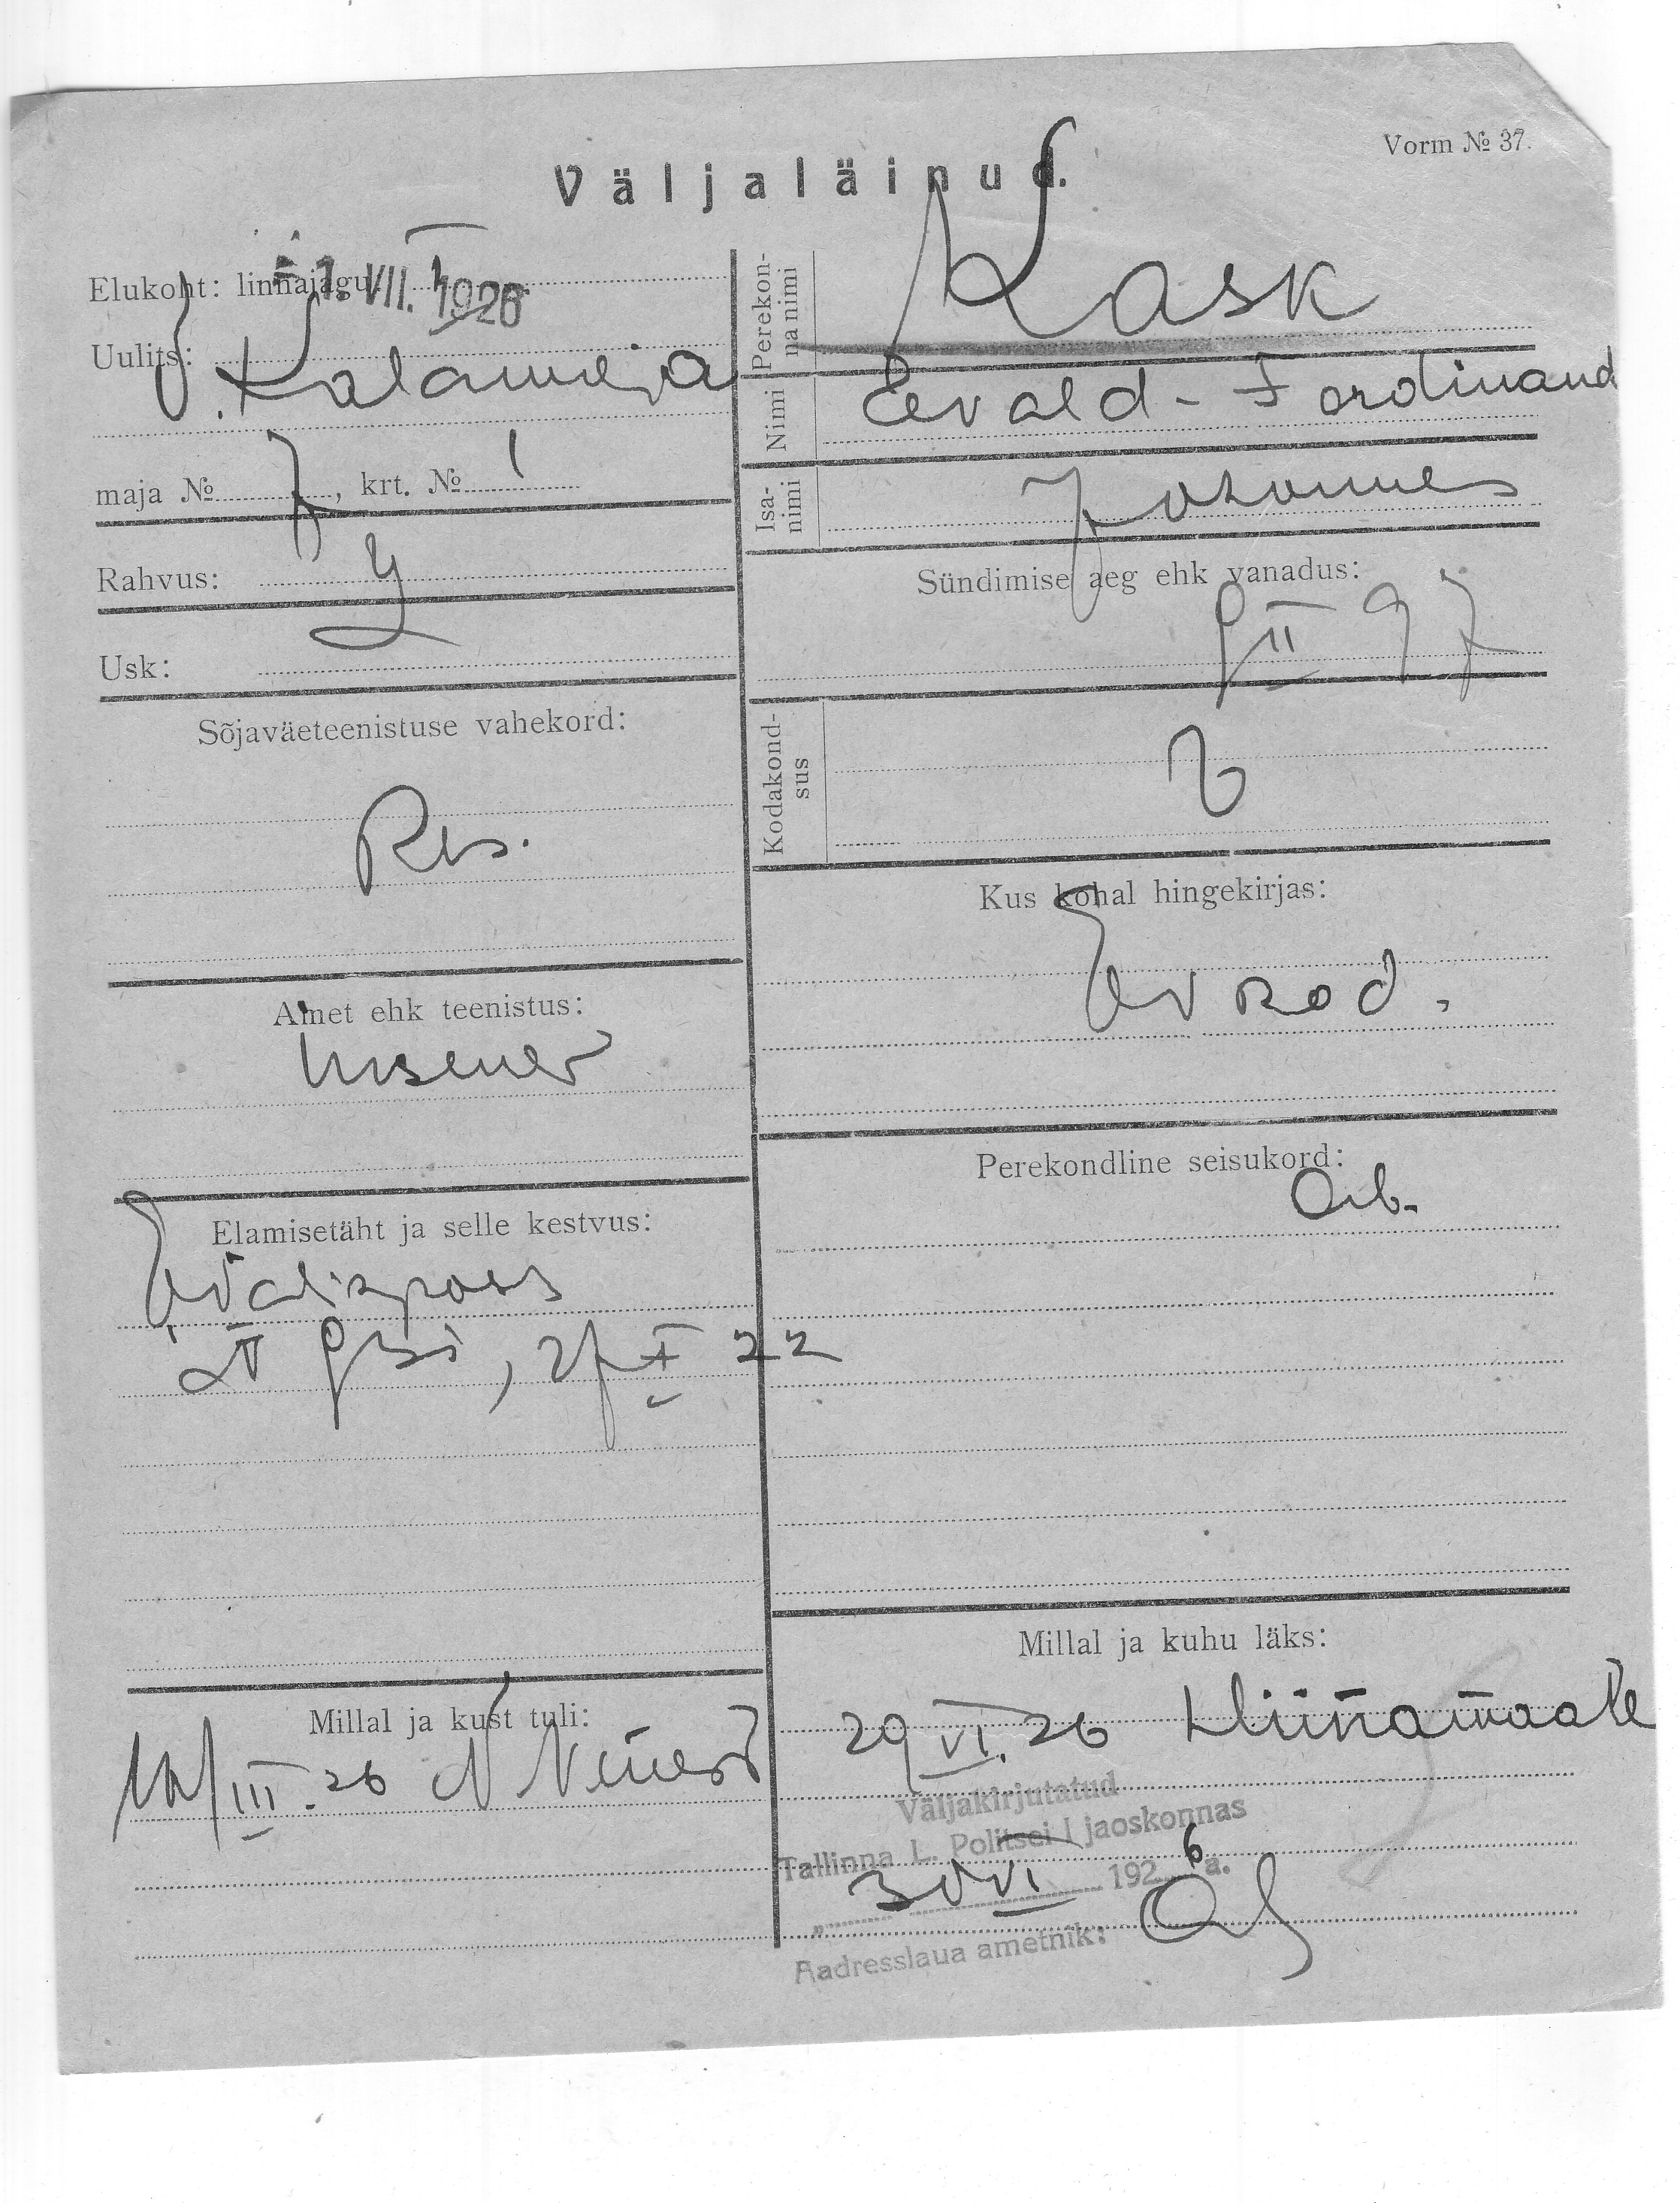 Vorm № 37.
Väljaläinud.
Elukoht: linnajagu I
1. VII. 1926
Uulits: V. Kalameja
maja № 7, krt. № 1
Rahvus:
Usk:
Sõjaväeteenistuse vahekord:
Res.
Amet ehk teenistus:
Insener
Elamisetäht ja selle kestvus:
Välispass
22
Millal ja kust tuli:
III. 26
Perekonna nimi Kask
Nimi Evald-Ferdinand
Isanimi Johannes
Sündimise aeg ehk vanadus:
II 97
Kodakondsus
Kus kohal hingekirjas:
kod.
Perekondline seisukord:
Millal ja kuhu läks:
29 VI. 26 Hiinamaale
Väljakirjutatud
Tallinna L. Politsei I jaoskonnas
„ 30 VI 1926 a.
Aadresslaua ametnik: